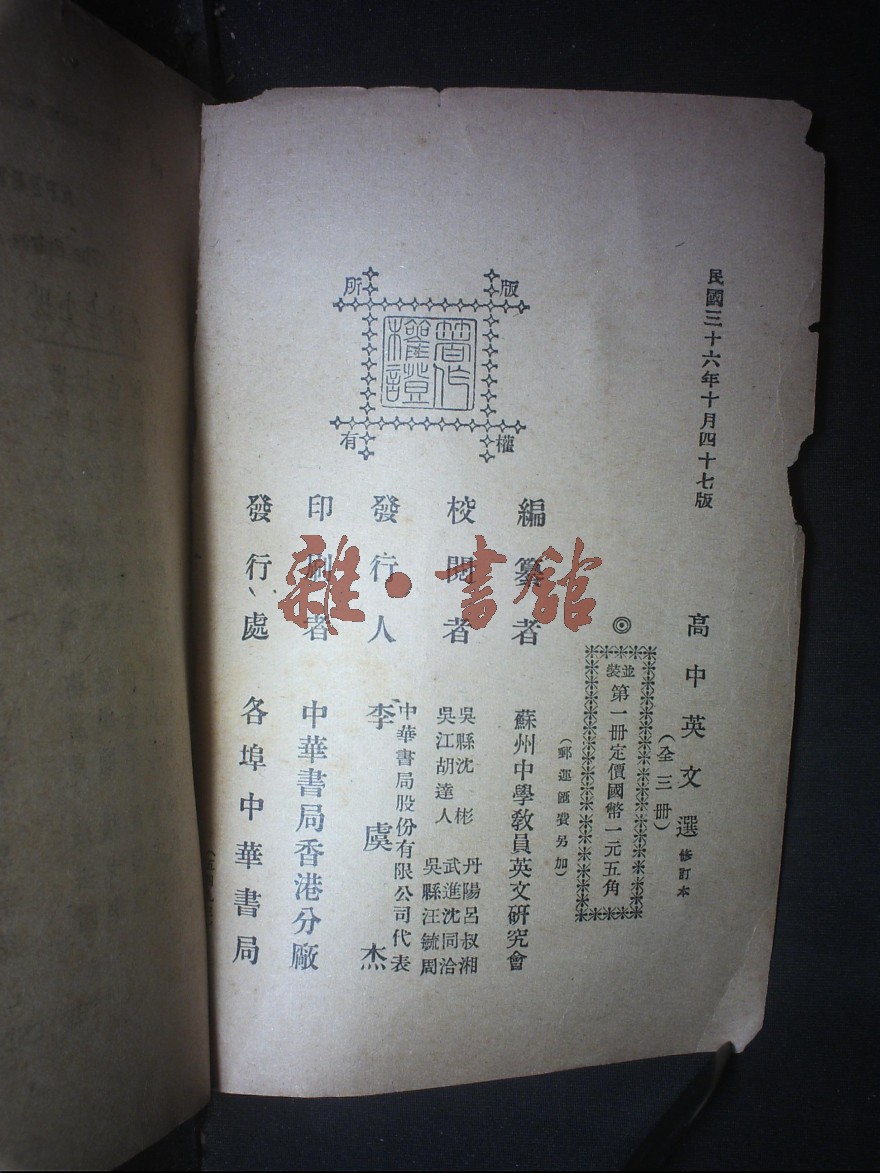 民國三十六年十月四十七版
高中英文選 修訂本
（全三冊）
◎
並裝
第一冊定價國幣一元五角
（郵運匯費另加）
版權
所有
著作權證
編纂者 蘇州中學教員英文研究會
校閱者
吳縣沈彬
吳江胡達人
丹陽呂叔湘
武進沈同洽
吳縣汪毓周
發行人
中華書局股份有限公司代表
李虞杰
印刷者 中華書局香港分廠
發行處 各埠中華書局
雜·書館